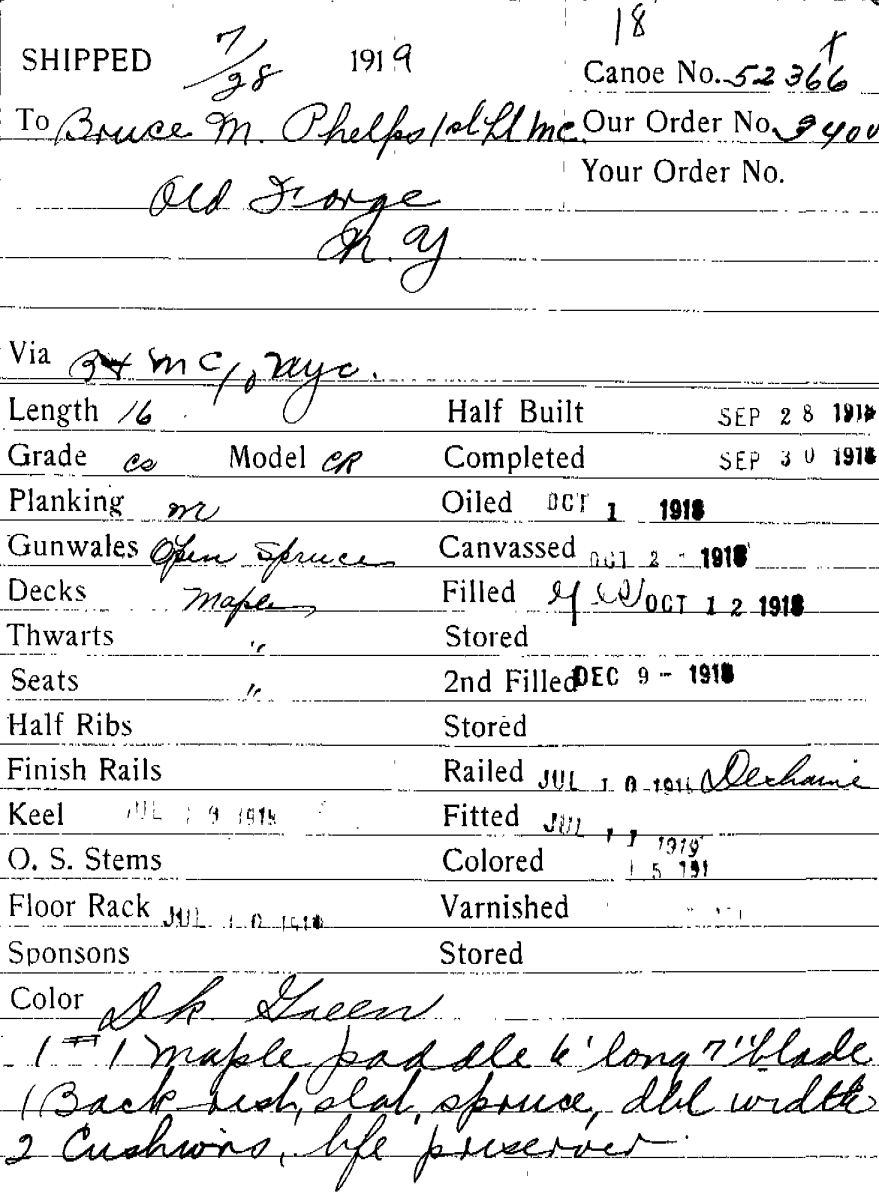 18
SHIPPED 7/28 1919 Canoe No. 52366
To Bruce M. Phelps 1st Lt MC Our Order No. 9400
Old Forge Your Order No.
N. Y
Via B & M C/o NYC.
Length 16 Half Built SEP 28 1918
Grade CS Model CR Completed SEP 30 1918
Planking Oiled OCT 1 1918
Gunwales Open Spruce Canvassed OCT 2 - 1918
Decks Maple Filled OCT 12 1918
Thwarts " Stored
Seats " 2nd Filled DEC 9 - 1918
Half Ribs Stored
Finish Rails Railed JUL 10 191 Dechaine
Keel JUL 9 191 Fitted JUL 11 1919
O. S. Stems Colored 15 191
Floor Rack JUL 10 191 Varnished
Sponsons Stored
Color Dk Green
1 #1 maple paddle 6' long 7" blade
1 Back rest, slat, spruce, dbl width
2 Cushions, life preserver